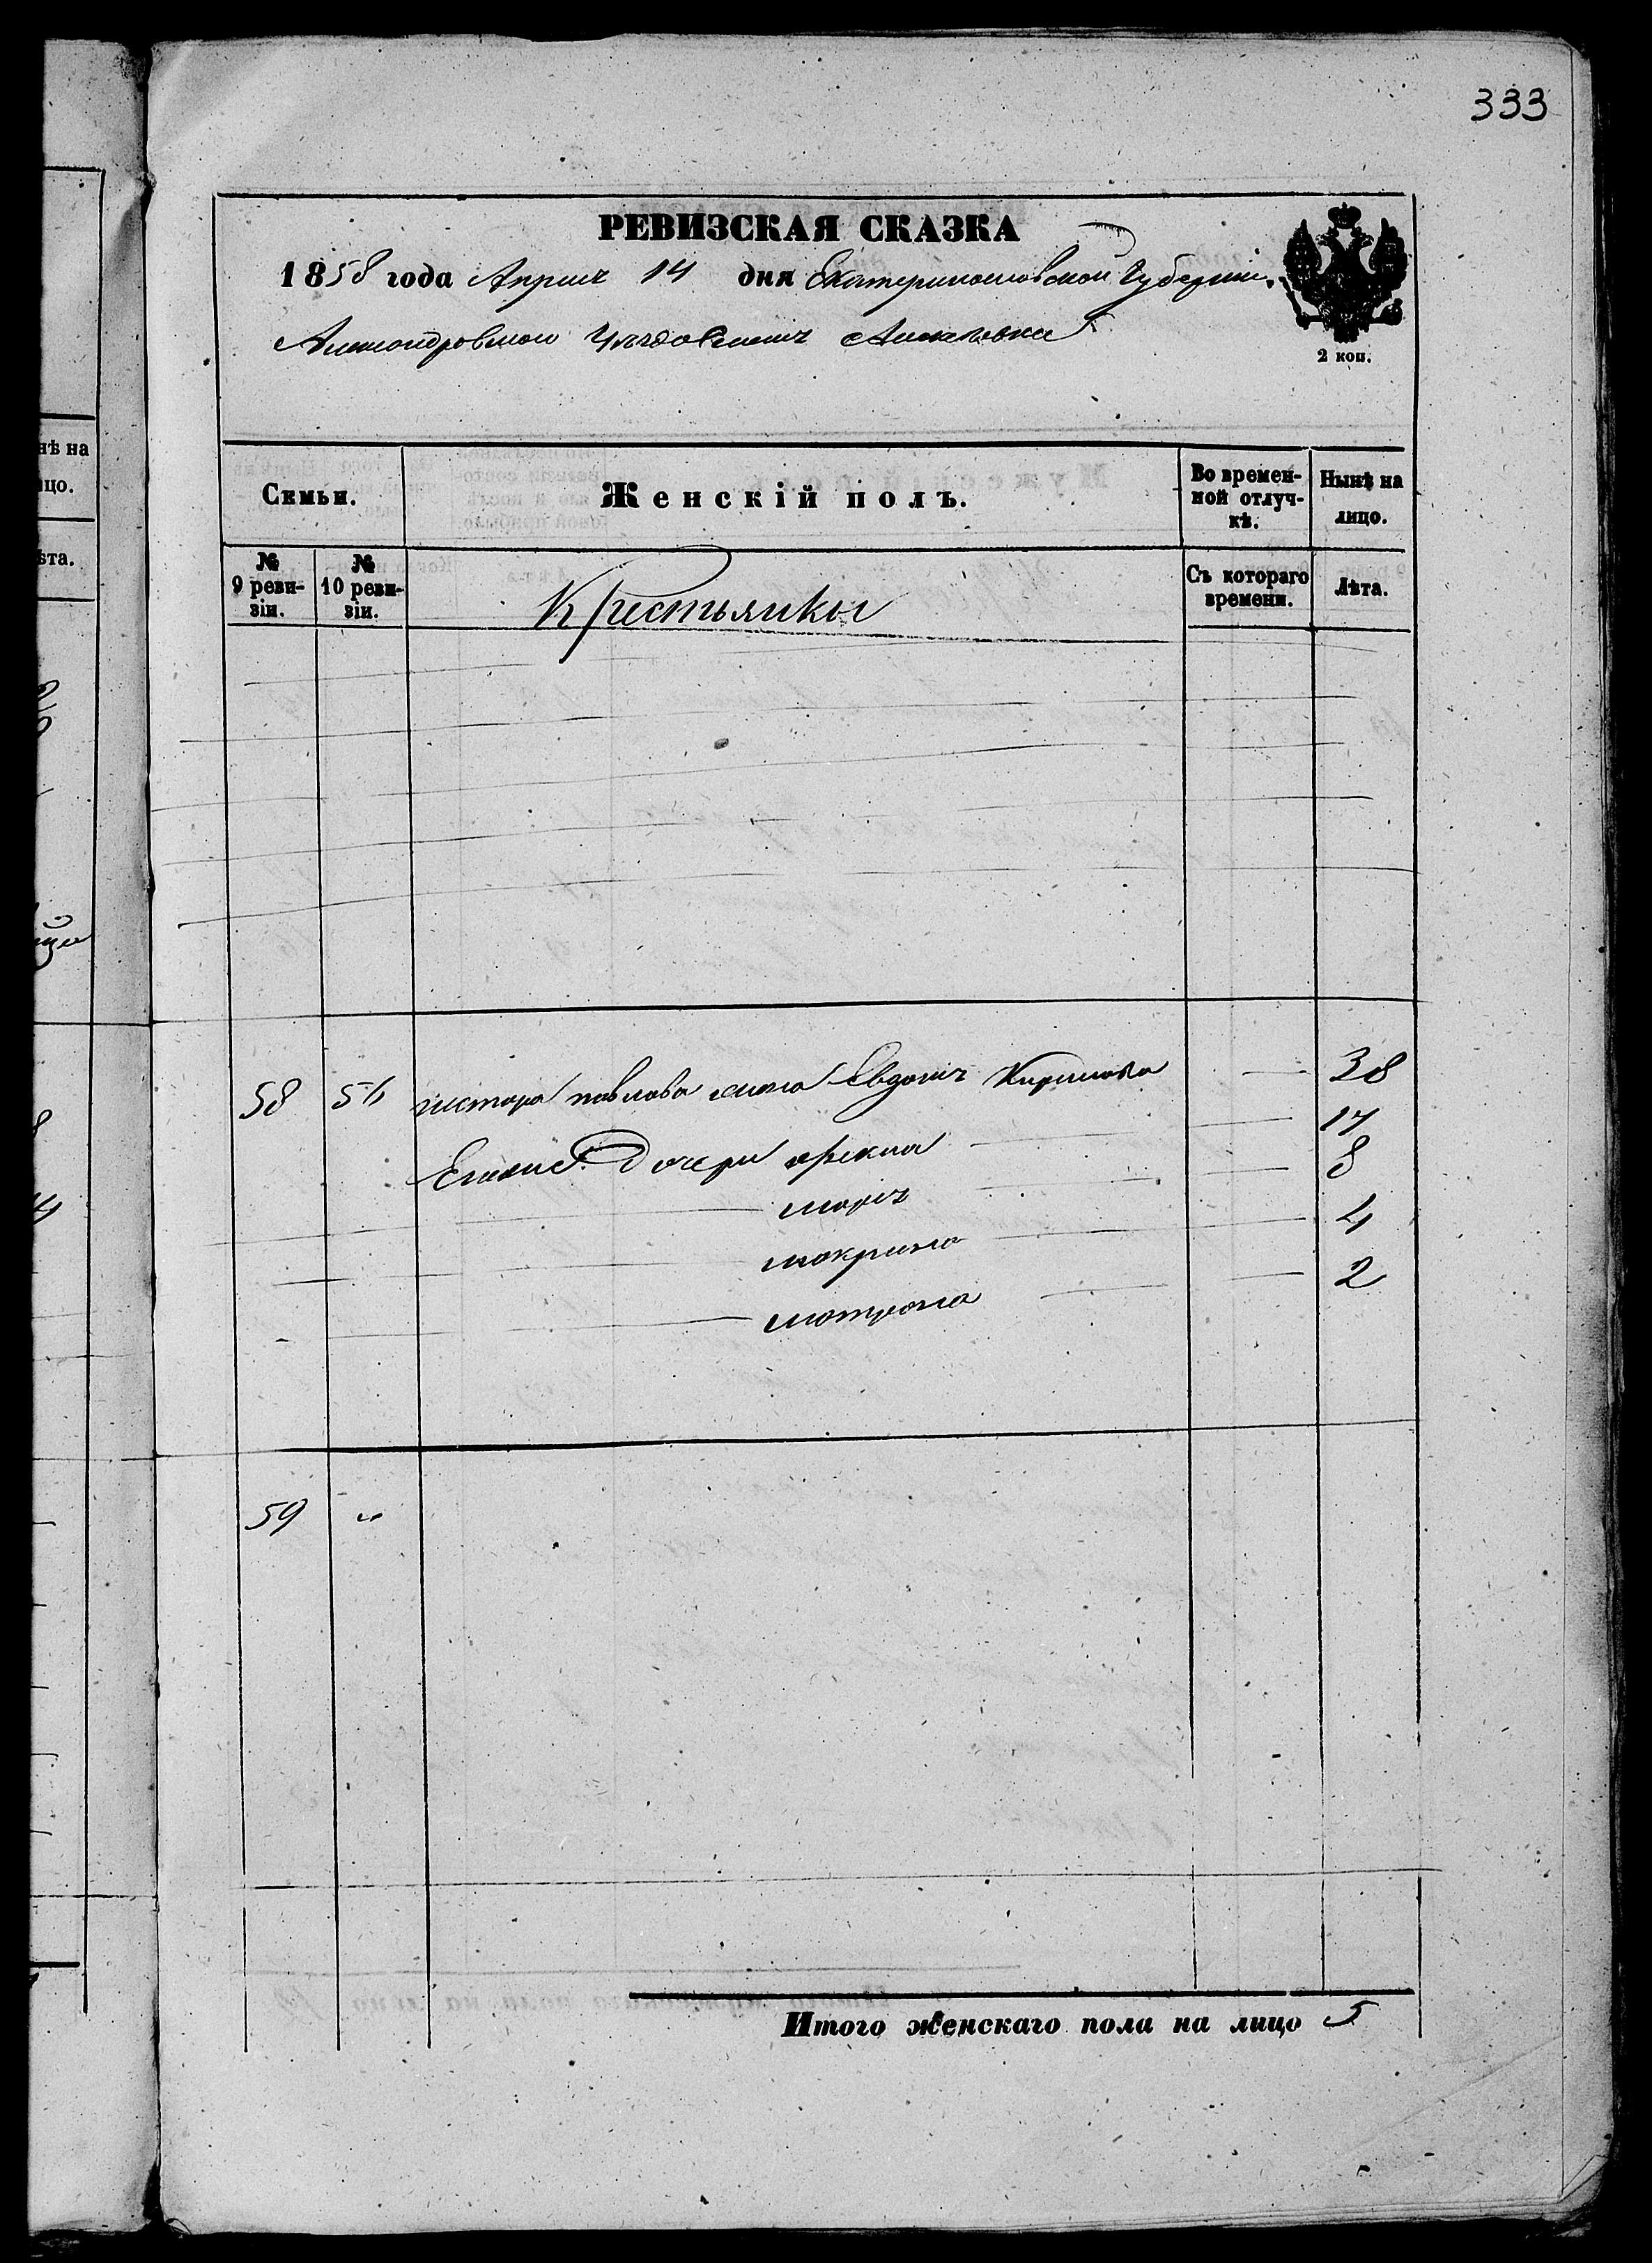 333
РЕВИЗСКАЯ СКАЗКА
1858 года Апреля 14 дня Екатеринославской Губернии,
Александровскаго Уезда
2 коп.
Семьи.
Женскій полъ.
Во времен-
ной отлуч-
кѣ.
Нынѣ на
лицо.
№
9 реви-
зіи.
№
10 реви-
зіи.
Крестьянки
Съ котораго
времени.
Лѣта.
58 нестора павлова жена Евдокия Кирилова 38
Дочери 17
мария 8
макрина 4
матрона 2
59 "
Итого женскаго пола на лицо 5
нѣ на
цо.
ѣта.